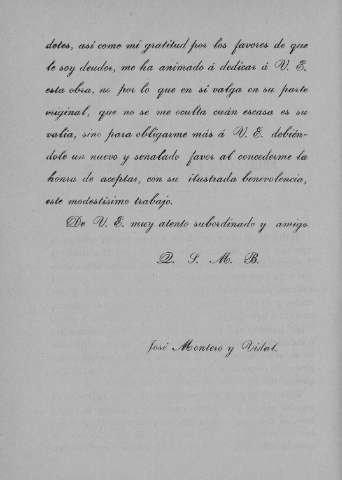 dotes, así como mi gratitud por los favores de que
le soy deudor, me ha animado á dedicar á V. E.
esta obra, no por lo que en sí valga en su parte
original, que no se me oculta cuán escasa es su
valía, sino para obligarme más á V. E. debién-
dole un nuevo y señalado favor al concederme la
honra de aceptar, con su ilustrada benevolencia,
este modestísimo trabajo.
De V. E. muy atento subordinado y amigo
Q. S. M. B.
José Montero y Vidal.